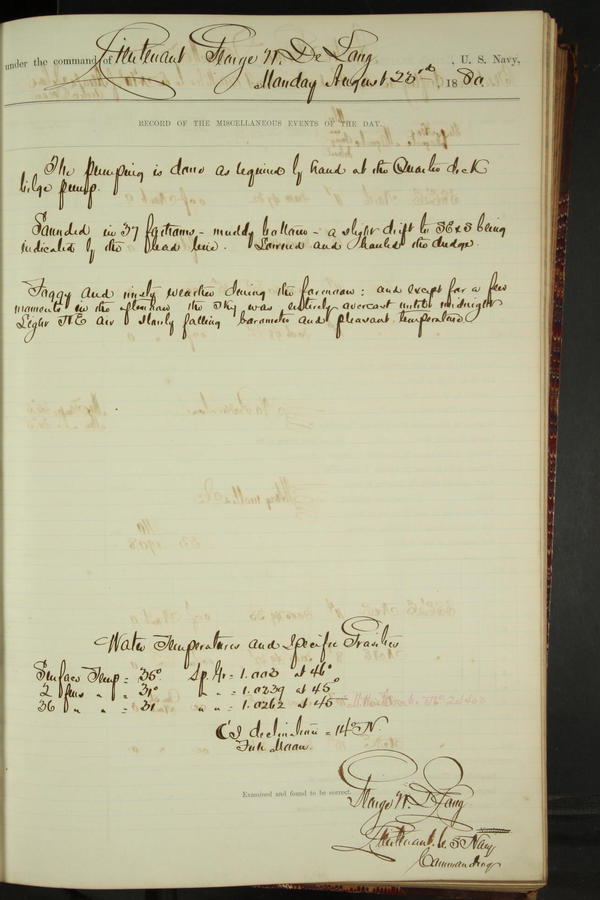 under the command of Lieutenant George W. De Long, U. S. Navy,
Monday August 23rd, 1880.
RECORD OF THE MISCELLANEOUS EVENTS OF THE DAY.
The pumping is done as required by hand at the Quarter deck
bilge pump.
Sounded in 37 fathoms - muddy bottom - a slight drift to SExS being
indicated by the lead line. Lowered and hauled the dredge.
Foggy and misty weather during the forenoon: and except for a few
moments in the afternoon the sky was entirely overcast until midnight
Light NE air slowly falling barometer and pleasant temperature
Water Temperatures and Specific Gravities
Surface Temp = 35° Sp. Gr = 1.003 at 46°
2 fms " " = 31° " " = 1.0239 at 45°
36 " " = 31 " " = 1.0262 at 45
C's declination = 14° N.
Full Moon.
Examined and found to be correct.
George W. De Long
Lieutenant U.S. Navy
Commanding